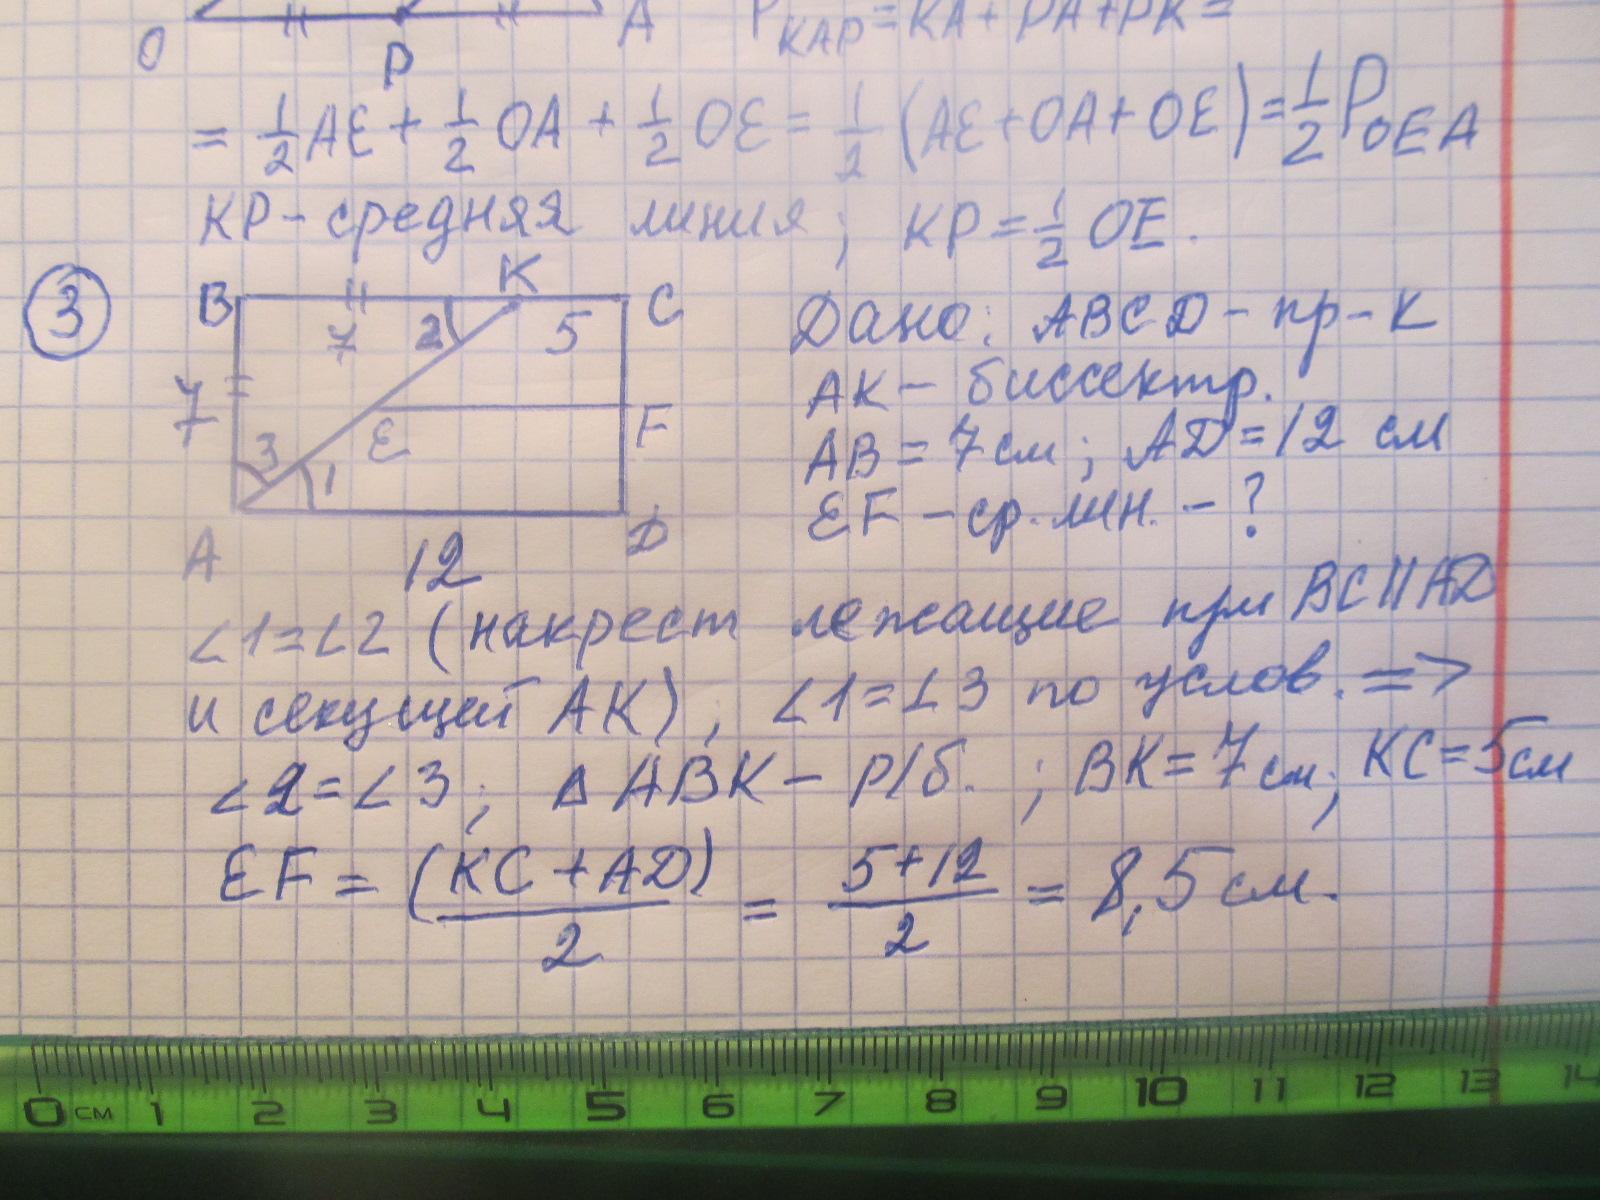 O P A P_KAP = KA + PA + PK =
= 1/2 AE + 1/2 OA + 1/2 OE = 1/2 (AE + OA + OE) = 1/2 P_OEA
KP - средняя линия; KP = 1/2 OE.
3
B K C
7 2 5
7
3 E F
1
A D
12
Дано: ABCD - пр-к
AK - биссектр.
AB = 7 см; AD = 12 см
EF - ср. лин. - ?
∠1 = ∠2 (накрест лежащие при BC || AD
и секущей AK), ∠1 = ∠3 по услов. =>
∠2 = ∠3; Δ ABK - р/б. ; BK = 7 см; KC = 5 см
EF = (KC + AD)/2 = 5 + 12/2 = 8,5 см.
0 см 1 2 3 4 5 6 7 8 9 10 11 12 13 14